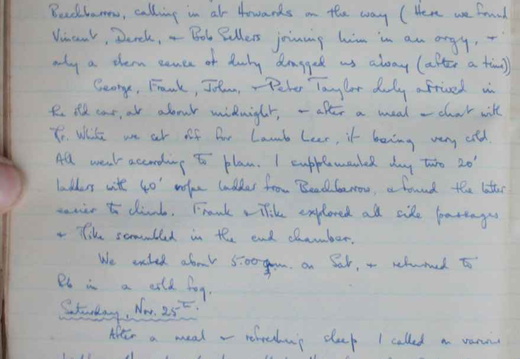 Beechbarrow, calling in at Howards on the way (Here we found
Vincent, Derek, + Bob Sellers joining him in an orgy, +
only a stern sence of duty dragged us away (after a time))
George, Frank, John, + Peter Taylor duly arrived in
the old car, at about midnight, + after a meal + chat with
Mr. White we set off for Lamb Leer, it being very cold.
All went according to plan. I supplemented my two 20'
ladders with 40' rope ladder from Beechbarrow, + found the latter
easier to climb. Frank + Mike explored all side passages
+ Mike scrambled in the end chamber.
We exited about 5.00 a.m. on Sat, + returned to
Pb in a cold fog.
Saturday, Nov. 25th.
After a meal + refreshing sleep I called on various